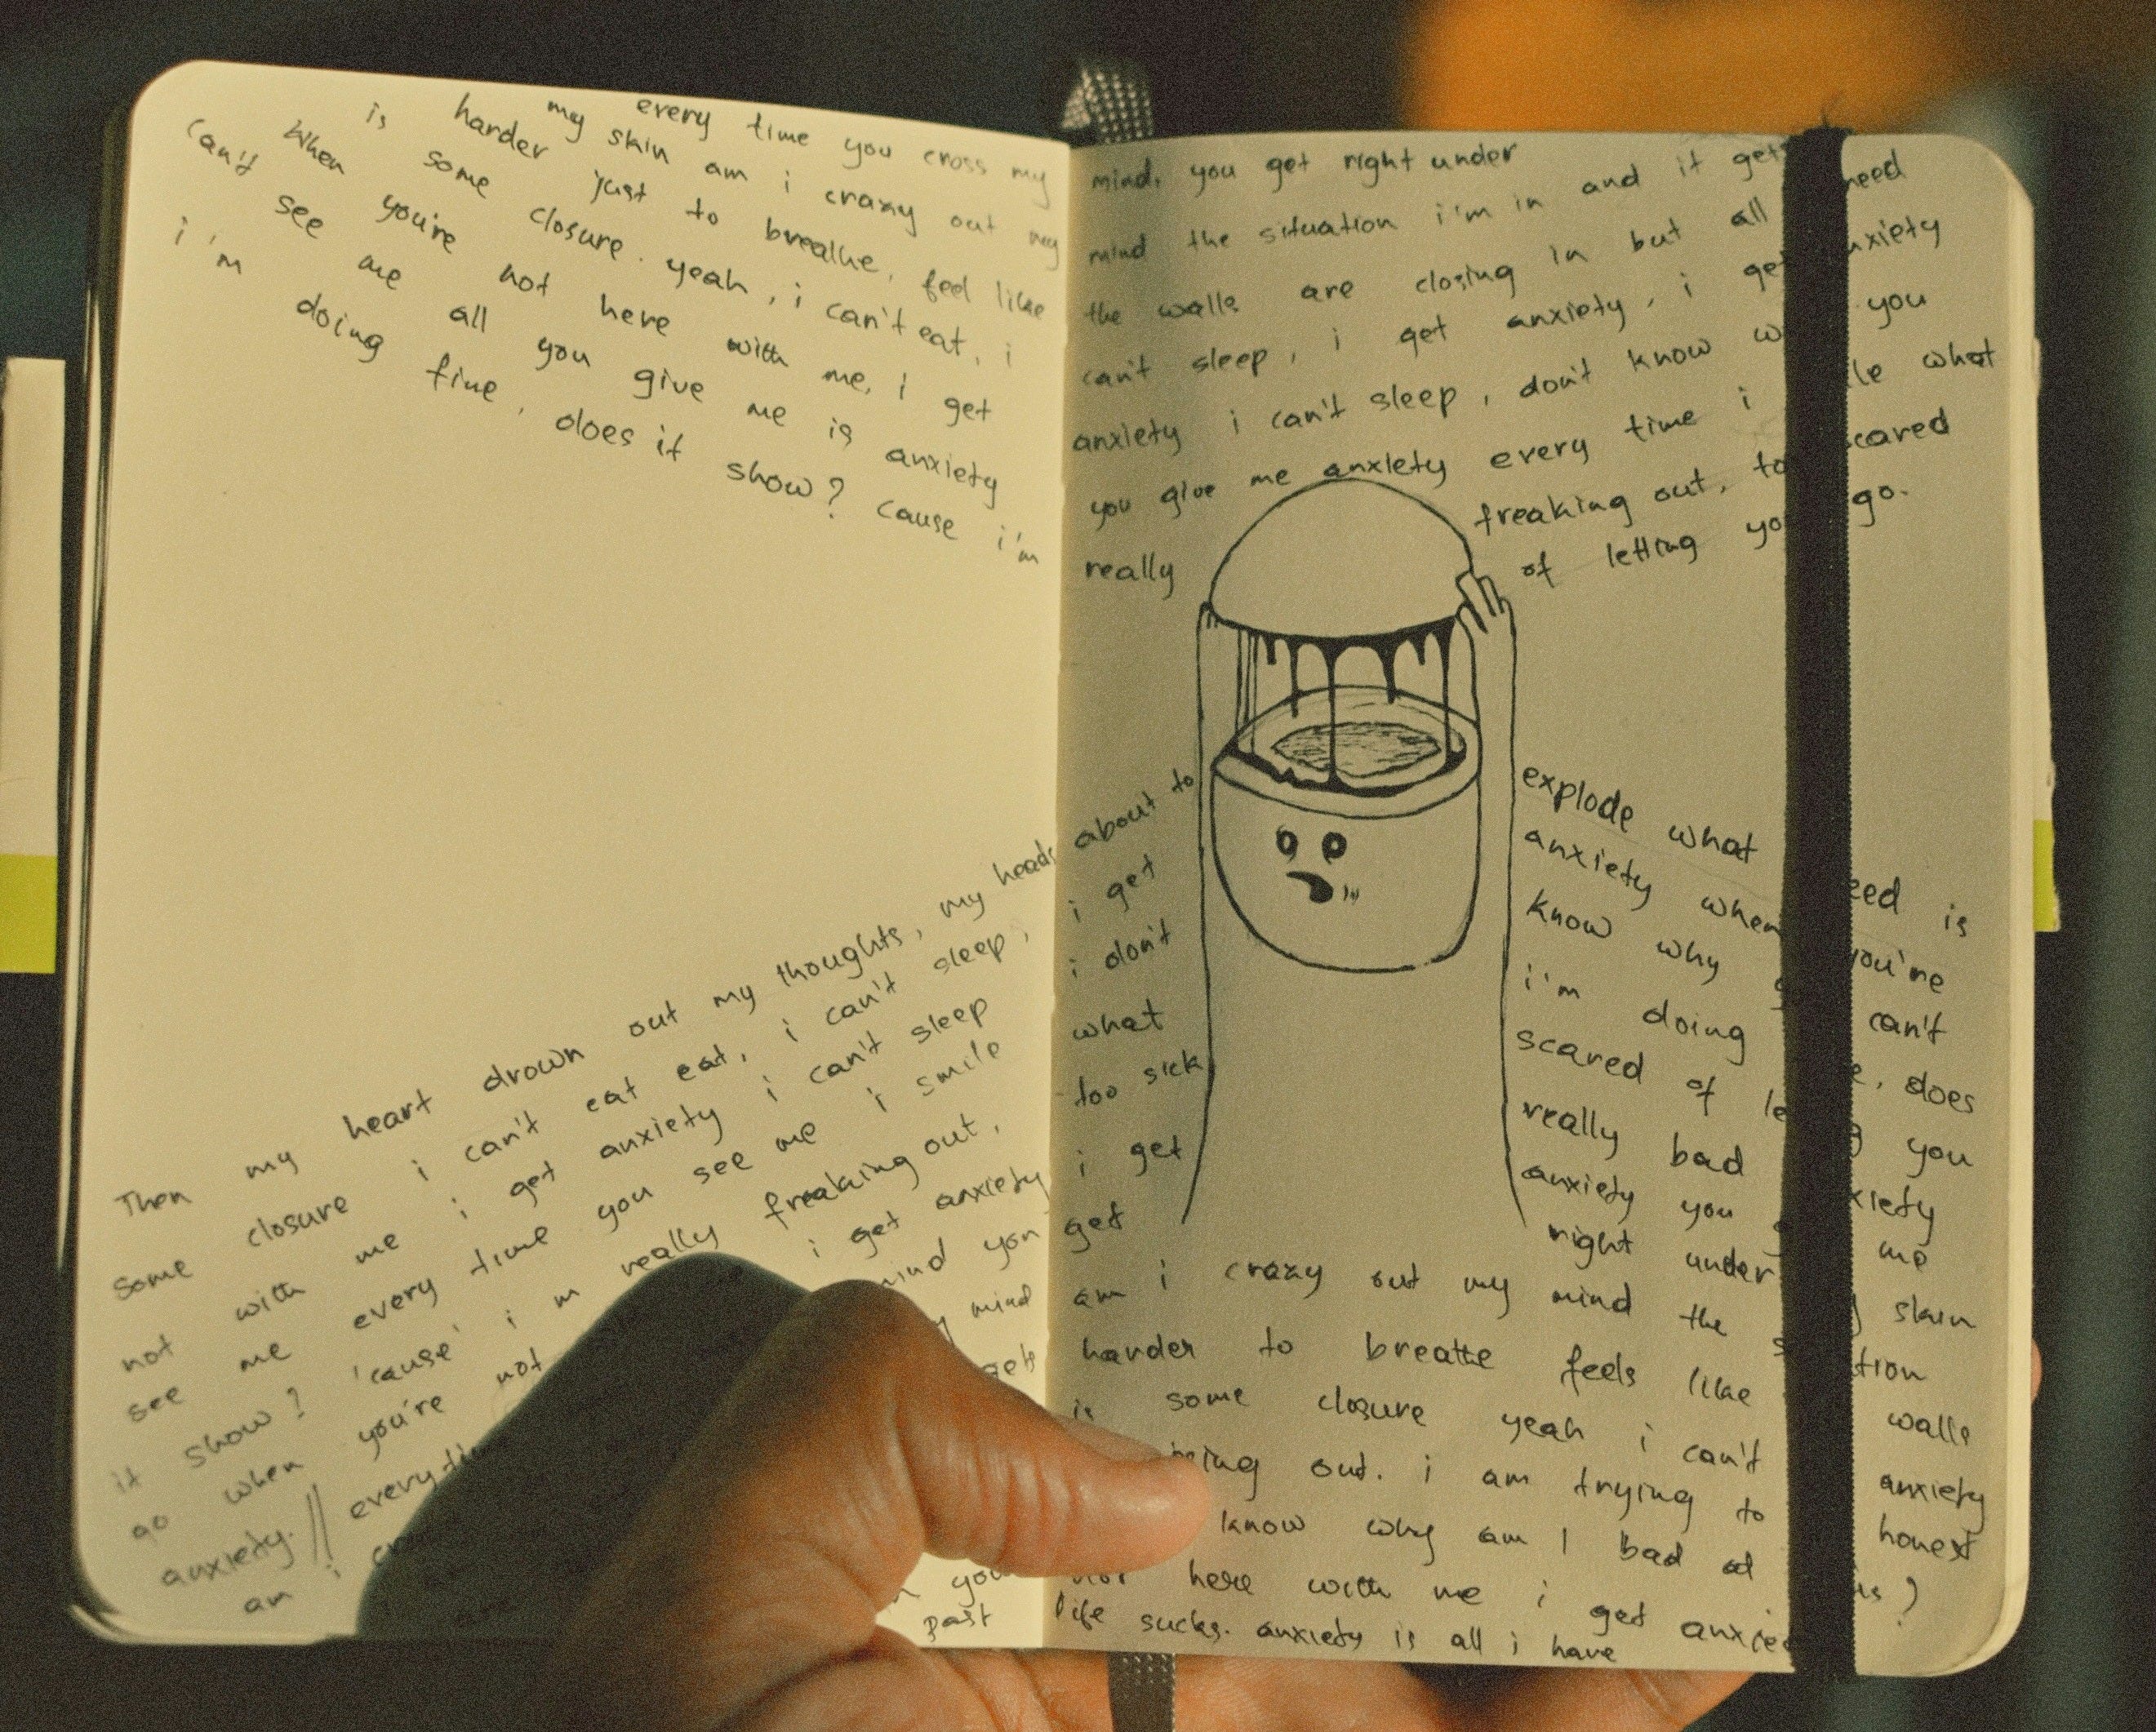 every time you cross my
my skin am i crazy out my
harder just to breathe, feel like
is some closure. yeah, i can't eat, i
When you're not here with me, i get
can't see me all you give me is anxiety
i'm doing fine, does it show? cause i'm
Then my heart drown out my thoughts, my heads
some closure i can't eat eat, i can't sleep,
not with me i get anxiety i can't sleep
see me every time you see me i smile
it show? 'cause' i'm really freaking out,
go when you're not i get anxiety
anxiety. // every mind you
am i mind
gets
you
past
mind, you get right under
mind the situation i'm in and it gets
the walls are closing in but all need
can't sleep, i get anxiety, i get anxiety
anxiety i can't sleep, don't know you
you give me anxiety every time i what
really freaking out, too scared
of letting you go.
about to explode what need is
i get anxiety when you're
i don't know why can't
what i'm doing does
too sick scared of you
i get really bad anxiety
get anxiety you me
right under skin
am i crazy out my mind the
harder to breathe feels like walls
is some closure yeah i can't anxiety
out. i am trying to honest
know why am I bad at
here with me i get
life sucks. anxiety is all i have